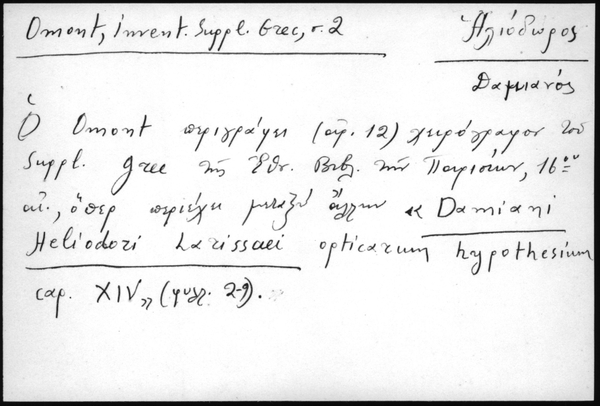 Omont, Invent. Suppl. Grec, σ. 2
Ἡλιόδωρος
Δαμιανός
Ὁ Omont περιγράφει (ἀρ. 12) χειρόγραφον τοῦ
Suppl. grec τῆς Ἐθν. Βιβλ. τῶν Παρισίων, 16ου
αἰ., ὅπερ περιέχει μεταξὺ ἄλλων « Damiani
Heliodori Larissaei opticarum hypothesium
cap. XIV» (φυλλ. 2-9).